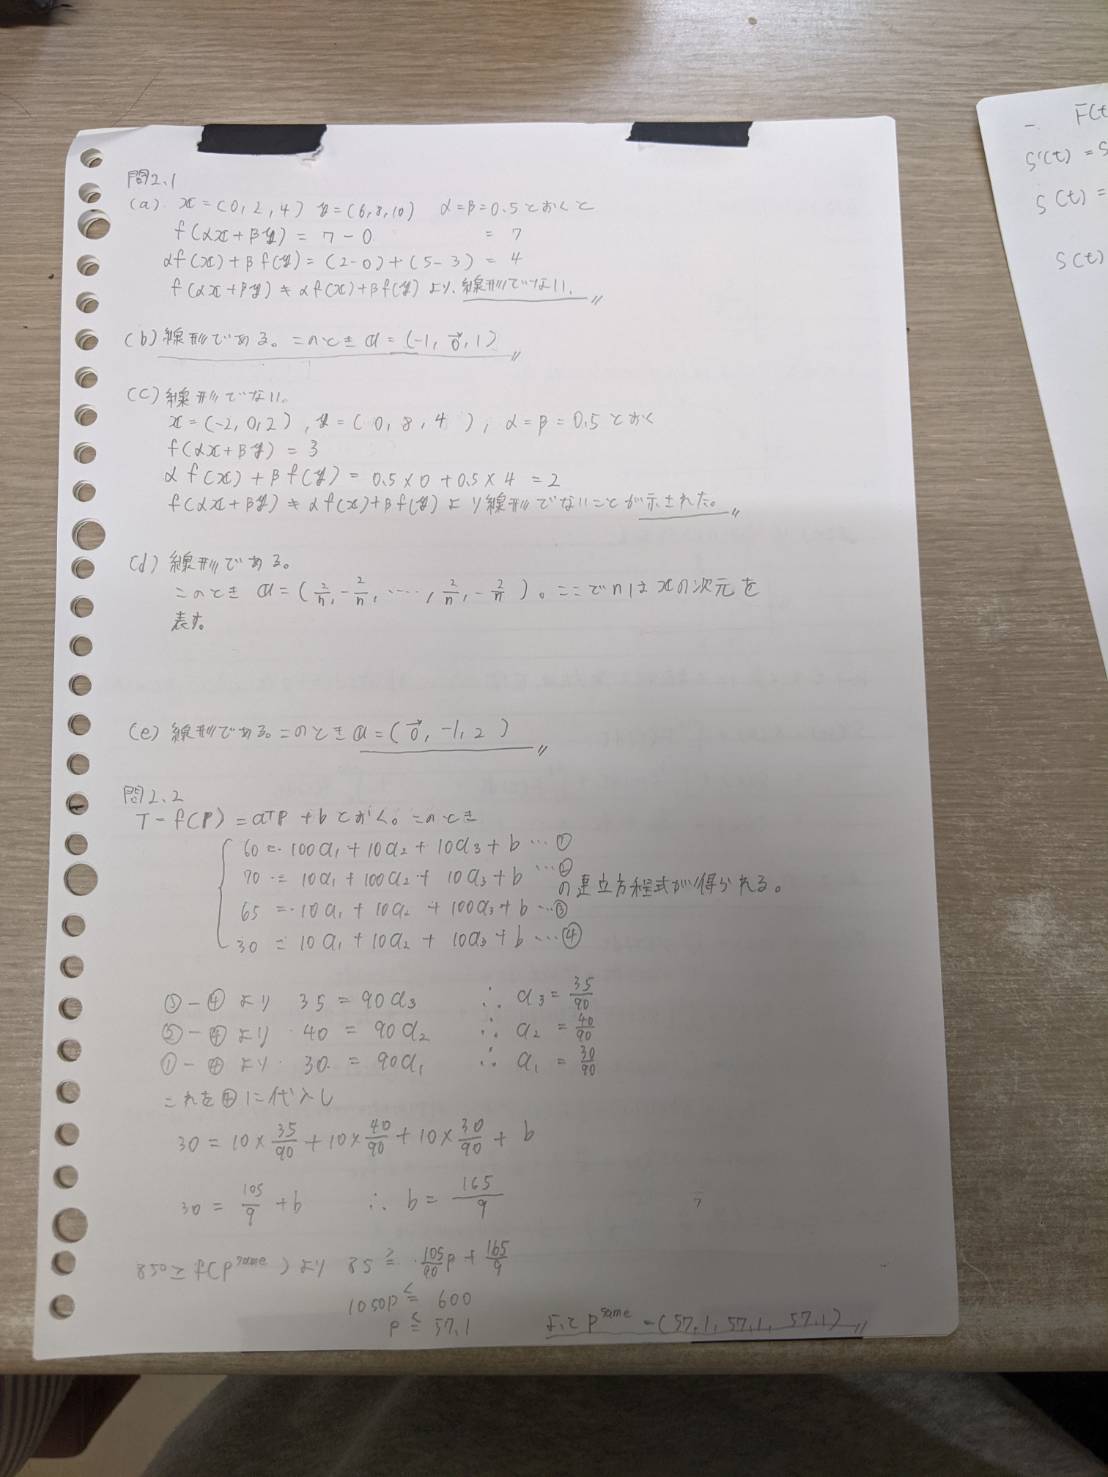 問2.1
(a) x=(0,2,4) y=(6,8,10) α=β=0.5とおくと
f(αx+βy)=7-0 =7
αf(x)+βf(y)=(2-0)+(5-3)=4
f(αx+βy)≠αf(x)+βf(y)より、線形でない。
(b)線形である。このときa=(-1,0⃗,1)
(c)線形でない。
x=(-2,0,2),y=(0,8,4),α=β=0.5とおく
f(αx+βy)=3
αf(x)+βf(y)=0.5×0+0.5×4=2
f(αx+βy)≠αf(x)+βf(y)より線形でないことが示された。
(d)線形である。
このとき a=(2/n,-2/n,……,2/n,-2/n)。ここでnはxの次元を
表す。
(e)線形である。このときa=(0⃗,-1,2)
問2.2
T=f(P)=aᵀP+bとおく。このとき
60=100a₁+10a₂+10a₃+b…①
70=10a₁+100a₂+10a₃+b…②
の連立方程式が得られる。
65=10a₁+10a₂+100a₃+b…③
30=10a₁+10a₂+10a₃+b…④
③-④より 35=90a₃ ∴a₃=35/90
②-④より 40=90a₂ ∴a₂=40/90
①-④より 30=90a₁ ∴a₁=30/90
これを④に代入し
30=10×35/90+10×40/90+10×30/90+b
30=105/9+b ∴b=165/9
85≥f(Pˢᵃᵐᵉ)より 85≥105/90p+165/9
1050p≤600
p≤57.1
よってPˢᵃᵐᵉ=(57.1,57.1,57.1)
F(t
S'(t)=S
S(t)=
S(t)